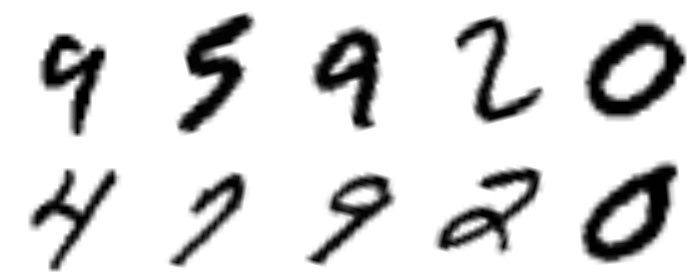 9 5 9 2 0
4 7 9 2 0